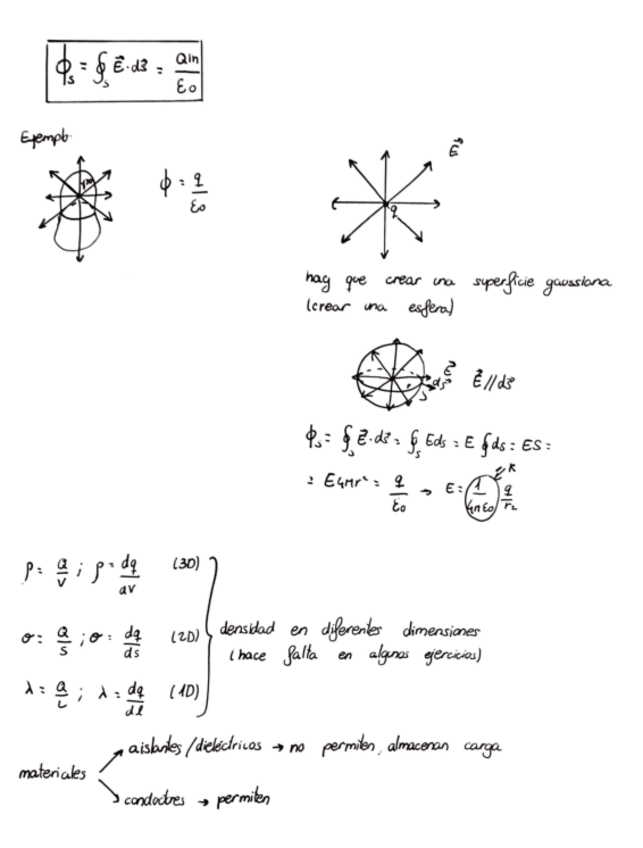 ϕs = ∮s E⃗·ds⃗ = Qin/ε0
Ejemplo.
ϕ = q/ε0
E⃗
q
hay que crear una superficie gaussiana
(crear una esfera)
E⃗
ds⃗
S
E⃗ // ds⃗
ϕs = ∮s E⃗·ds⃗ = ∮s E ds = E ∮ ds = ES =
= E4πr² = q/ε0 → E = 1/4πε0 q/r²
K
ρ = Q/V ; ρ = dq/dV (3D)
σ = Q/S ; σ = dq/ds (2D)
densidad en diferentes dimensiones
(hace falta en algunos ejercicios)
λ = Q/L ; λ = dq/dl (1D)
aislantes/dieléctricos → no permiten, almacenan carga
materiales
conductores → permiten